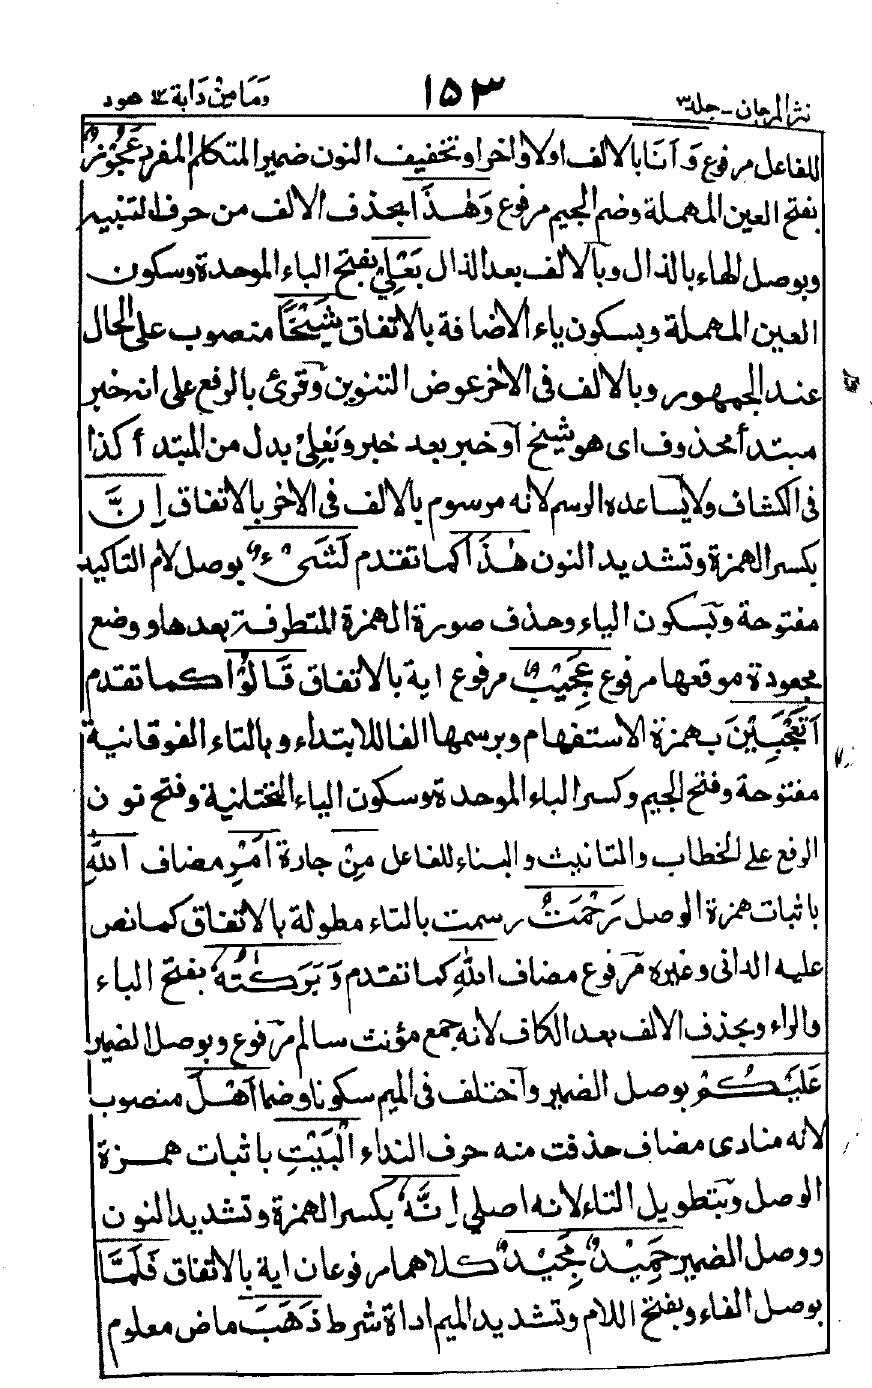 نثر المرجان - جلد ٣ ١٥٣ وَمَا مِنْ دَابة ١٢ هود
للفاعل مرفوع وَاَنَا بالالف اولا واخرا وتخفيف النون ضمير المتكلم المفرد عَجُوْزٌ
بفتح العين المهملة وضم الجيم مرفوع وَهٰذَا بحذف الالف من حرف التنبيه
وبوصل الهاء بالذال وبالالف بعد الذال بَعْلِيْ بفتح الباء الموحدة وسكون
العين المهملة وبسكون ياء الاضافة بالاتفاق شَيْخًا منصوب على الحال
عند الجمهور وبالالف فى الاخر عوض التنوين وقرئ بالرفع على انه خبر
مبتدأ محذوف اى هو شيخ او خبر بعد خبر وبَعْلِيْ بدل من المبتدأ كذا
فى الكشاف ولا يساعده الرسم لانه مرسوم بالالف فى الاخر بالاتفاق اِنَّ
بكسر الهمزة وتشديد النون هٰذَا كما تقدم لَشَىْءٌ بوصل لام التاكيد
مفتوحة وبسكون الياء وحذف صورة الهمزة المتطرفة بعدها ووضع
مجعودة موقعها مرفوع عَجِيْبٌ مرفوع اية بالاتفاق قَالُوْا كما تقدم
اَتَعْجَبِيْنَ بهمزة الاستفهام وبرسمها الفا للابتداء وبالتاء الفوقانية
مفتوحة وفتح الجيم وكسر الباء الموحدة وسكون الياء التحتانية وفتح نون
الرفع على الخطاب والتانيث والبناء للفاعل مِنْ جارة اَمْرِ مضاف اللّٰهِ
باثبات همزة الوصل رَحْمَتُ رسمت بالتاء مطولة بالاتفاق كما نص
عليه الدانى وغيره مرفوع مضاف اللّٰهِ كما تقدم وَبَرَكٰتُهٗ بفتح الباء
والراء وبحذف الالف بعد الكاف لانه جمع مؤنث سالم مرفوع وبوصل الضمير
عَلَيْكُمْ بوصل الضمير واختلف فى الميم سكونا وضما اَهْلَ منصوب
لانه منادى مضاف حذفت منه حرف النداء الْبَيْتِ باثبات همزة
الوصل وبتطويل التاء لانه اصلي اِنَّهٗ بكسر الهمزة وتشديد النون
ووصل الضمير حَمِيْدٌ مَّجِيْدٌ كلاهما مرفوعان اية بالاتفاق فَلَمَّا
بوصل الفاء وبفتح اللام وتشديد الميم اداة شرط ذَهَبَ ماض معلوم